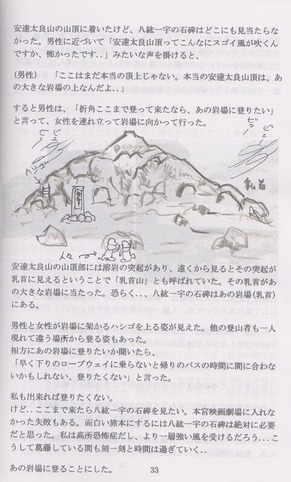 安達太良山の山頂に着いたけど、八紘一宇の石碑はどこにも見当たらな
かった。男性に近づいて「安達太良山頂ってこんなにスゴイ風が吹くん
ですか、怖かったです..」みたいな声を掛けると、
(男性)　「ここはまだ本当の頂上じゃない。本当の安達太良山頂は、あ
の大きな岩場の上なんだよ..」
すると男性は、「折角ここまで登って来たなら、あの岩場に登りたい」
と言って、女性を連れ立って岩場に向かって行った。
ビュー
ビュー
乳首
人々
安達太良山の山頂部には溶岩の突起があり、遠くから見るとその突起が
乳首に見えるということで「乳首山」とも呼ばれていた。その乳首があ
の大きな岩場に当たった。恐らく..、八紘一宇の石碑はあの岩場(乳首)
にある。
男性と女性が岩場に架かるハシゴを上る姿が見えた。他の登山者も一人
現れて違う場所から登る姿もあった。
相方にあの岩場に登りたいか聞いたら、
「早く下りのロープウェイに乗らないと帰りのバスの時間に間に合わな
いかもしれない、登りたくない」と言った。
私も出来れば登りたくない。
けど..ここまで来たら八紘一宇の石碑を見たい。本宮映画劇場に入れな
かった失敗もある。面白い旅本にするには八紘一宇の石碑は絶対に必要
だと思った。私は高所恐怖症だし、より一層強い風を受けるだろう...こ
うして葛藤している間も刻一刻と時間は過ぎていく..
あの岩場に登ることにした。
33